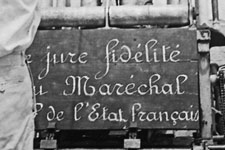 e jure fidélité
u Maréchal
f de l'État français